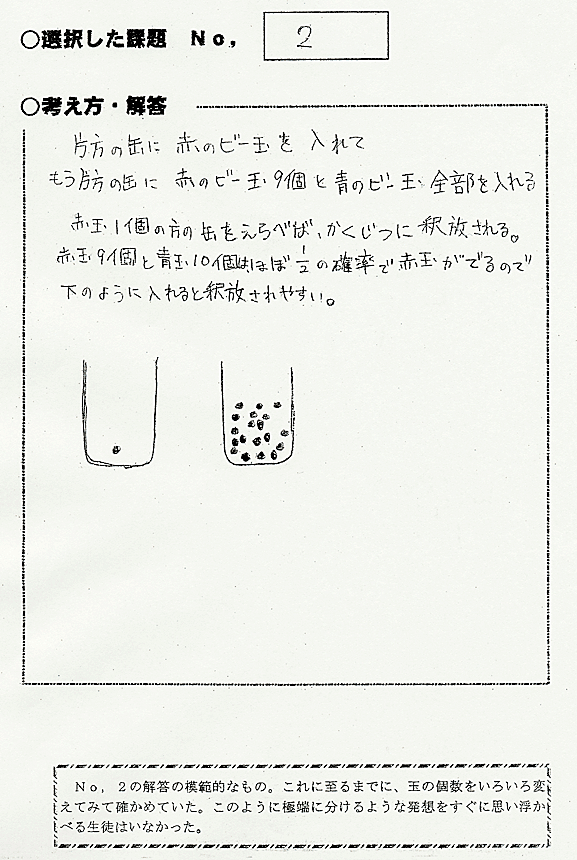 ○選択した課題 No, 2
○考え方・解答
片方の缶に 赤のビー玉を 入れて
もう片方の缶に 赤のビー玉9個と青のビー玉 全部を入れる
赤玉1個の方の缶をえらべば、かくじつに釈放される。
赤玉9個と青玉10個は、ほぼ1/2の確率で赤玉がでるので
下のように入れると釈放されやすい。
No, 2の解答の模範的なもの。これに至るまでに、玉の個数をいろいろ変
えてみて確かめていた。このように極端に分けるような発想をすぐに思い浮か
べる生徒はいなかった。